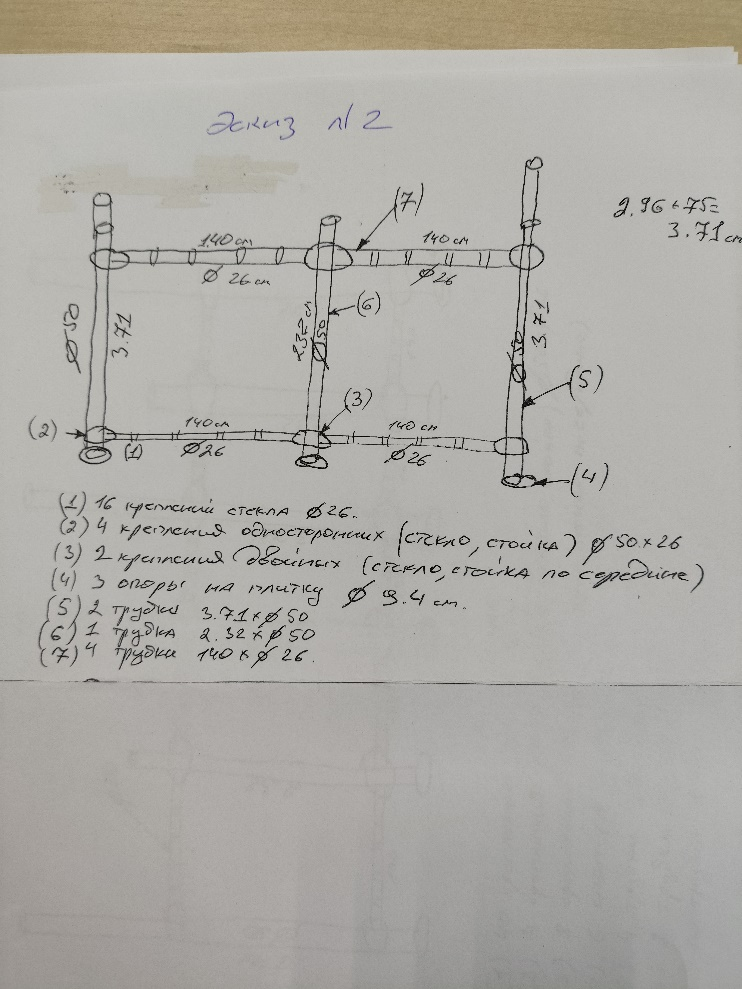 Эскиз №2
2.96+75=
3.71 см
(7)
140 см
140 см
Ø 26 см
Ø 26
Ø 50
3.71
232 см
Ø 50
(6)
Ø 50
3.71
(5)
(2)
(3)
140 см
140 см
(1)
Ø 26
Ø 26
(4)
(1) 16 креплений стекла Ø 26.
(2) 4 крепления односторонних (стекло, стойка) Ø 50×26
(3) 2 крепления двойных (стекло, стойка по середине)
(4) 3 опоры на плитку Ø 9.4 см.
(5) 2 трубки 3.71×Ø50
(6) 1 трубка 2.32×Ø50
(7) 4 трубки 140×Ø26.